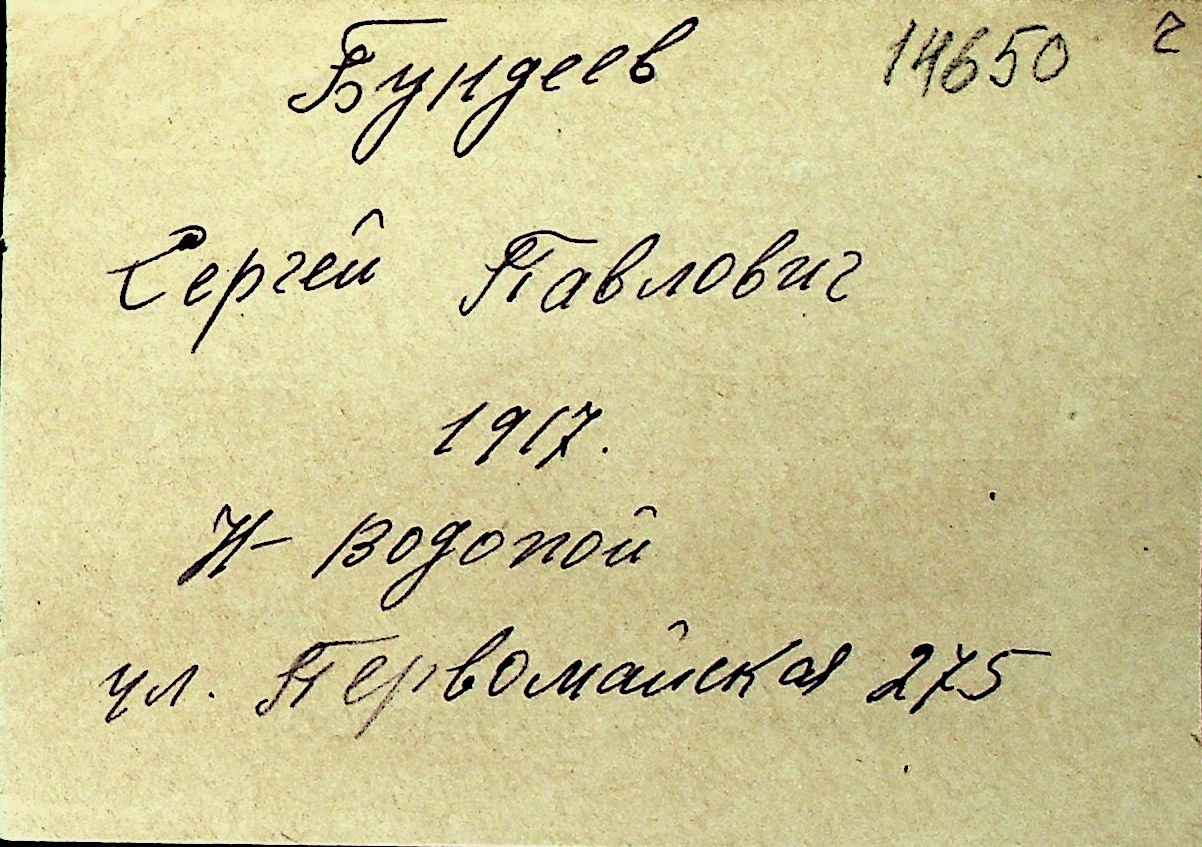 Бундеев 14650 г
Сергей Павлович
1917.
Н- Водопой
ул. Первомайская 275